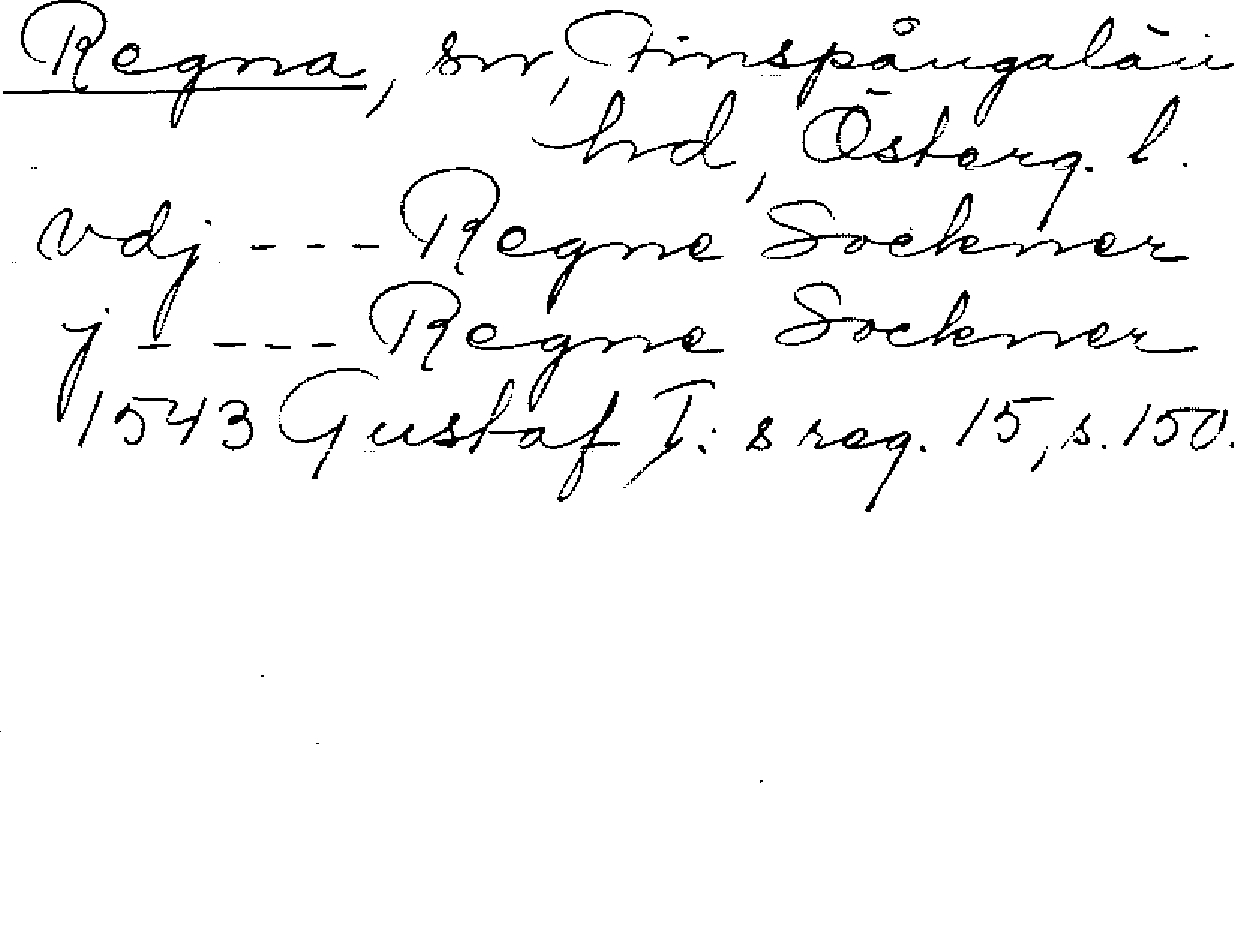 Regna, sn, Finspångalän
hd, Österg. l.
vdj --- Regne Sockner
j - --- Regne Sockner
1543 Gustaf I:s reg. 15, s. 150.